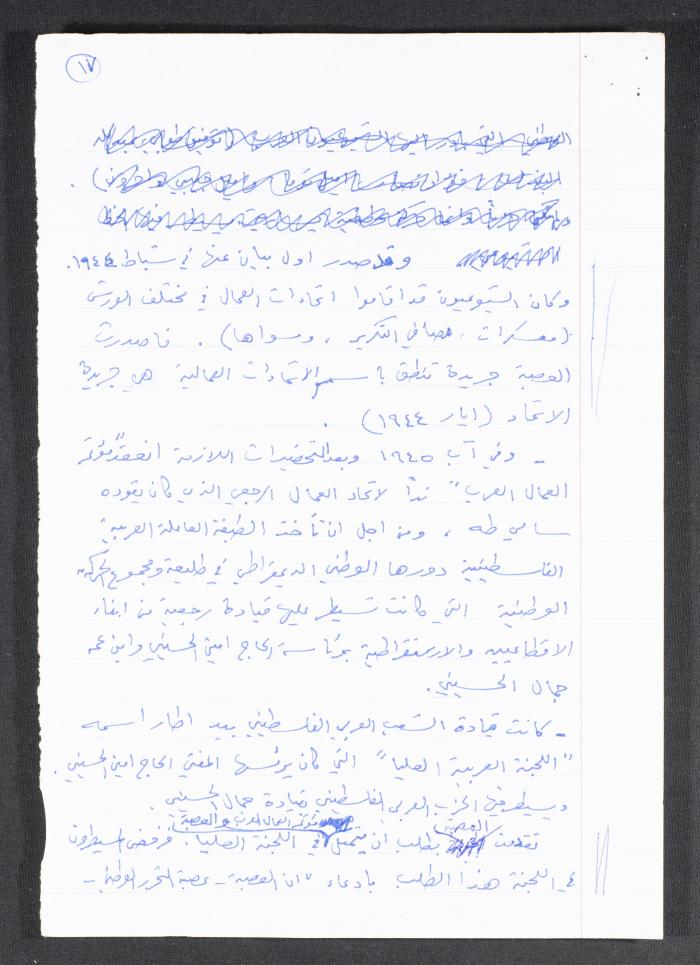 ١٧
وقد صدر اول بيان عنها في شباط ١٩٤٤.
وكان الشيوعيون قد اقاموا اتحادات العمال في مختلف الورش
(معسكرات ، مصافي التكرير ، وسواها) . فاصدرت
العصبة جريدة تنطق باسم الاتحادات العمالية هي جريدة
الاتحاد (ايار ١٩٤٤) .
- وفي آب ١٩٤٥ وبعد التحضيرات اللازمة انعقد "مؤتمر
العمال العرب" نداً لاتحاد العمال الرجعي الذي كان يقوده
سامي طه ، ومن اجل ان تأخذ الطبقة العاملة العربية
الفلسطينية دورها الوطني الديمقراطي في طليعة ومجموع الحركة
الوطنية التي كانت تسيطر عليها قيادة رجعية من ابناء
الاقطاعيين والارستقراطية برئاسة الحاج امين الحسيني وابن عمه
جمال الحسيني.
- كانت قيادة الشعب العربي الفلسطيني بيد اطار اسمه
"اللجنة العربية العليا" التي كان يرئسها المفتي الحاج امين الحسيني .
ويسيطر فيها الحزب العربي الفلسطيني بقيادة جمال الحسيني .
مؤتمر العمال العرب والعصبة
تقدمت العصبة بطلب ان يتمثل في اللجنة العليا . فرفض المسيطرون
على اللجنة هذا الطلب بادعاء "ان العصبة - عصبة التحرر الوطني -